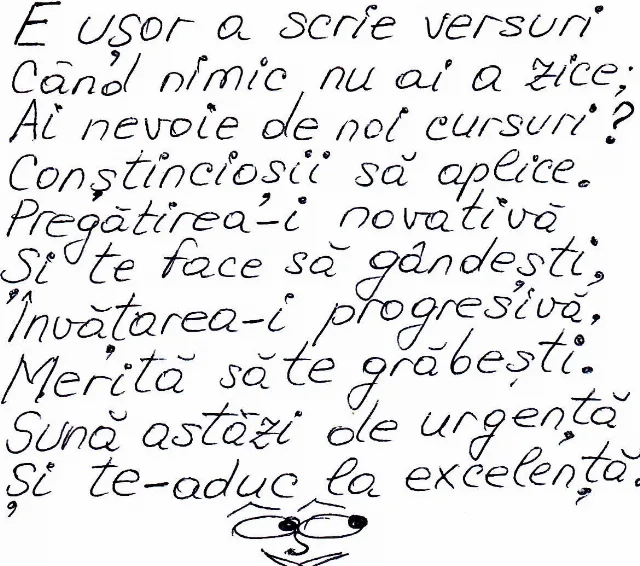 E ușor a scrie versuri
Când nimic nu ai a zice;
Ai nevoie de noi cursuri?
Conștincioșii să aplice.
Pregătirea-i novativă
Și te face să gândești,
Învățarea-i progresivă,
Merită să te grăbești.
Sună astăzi de urgență
Și te-aduc la excelență.